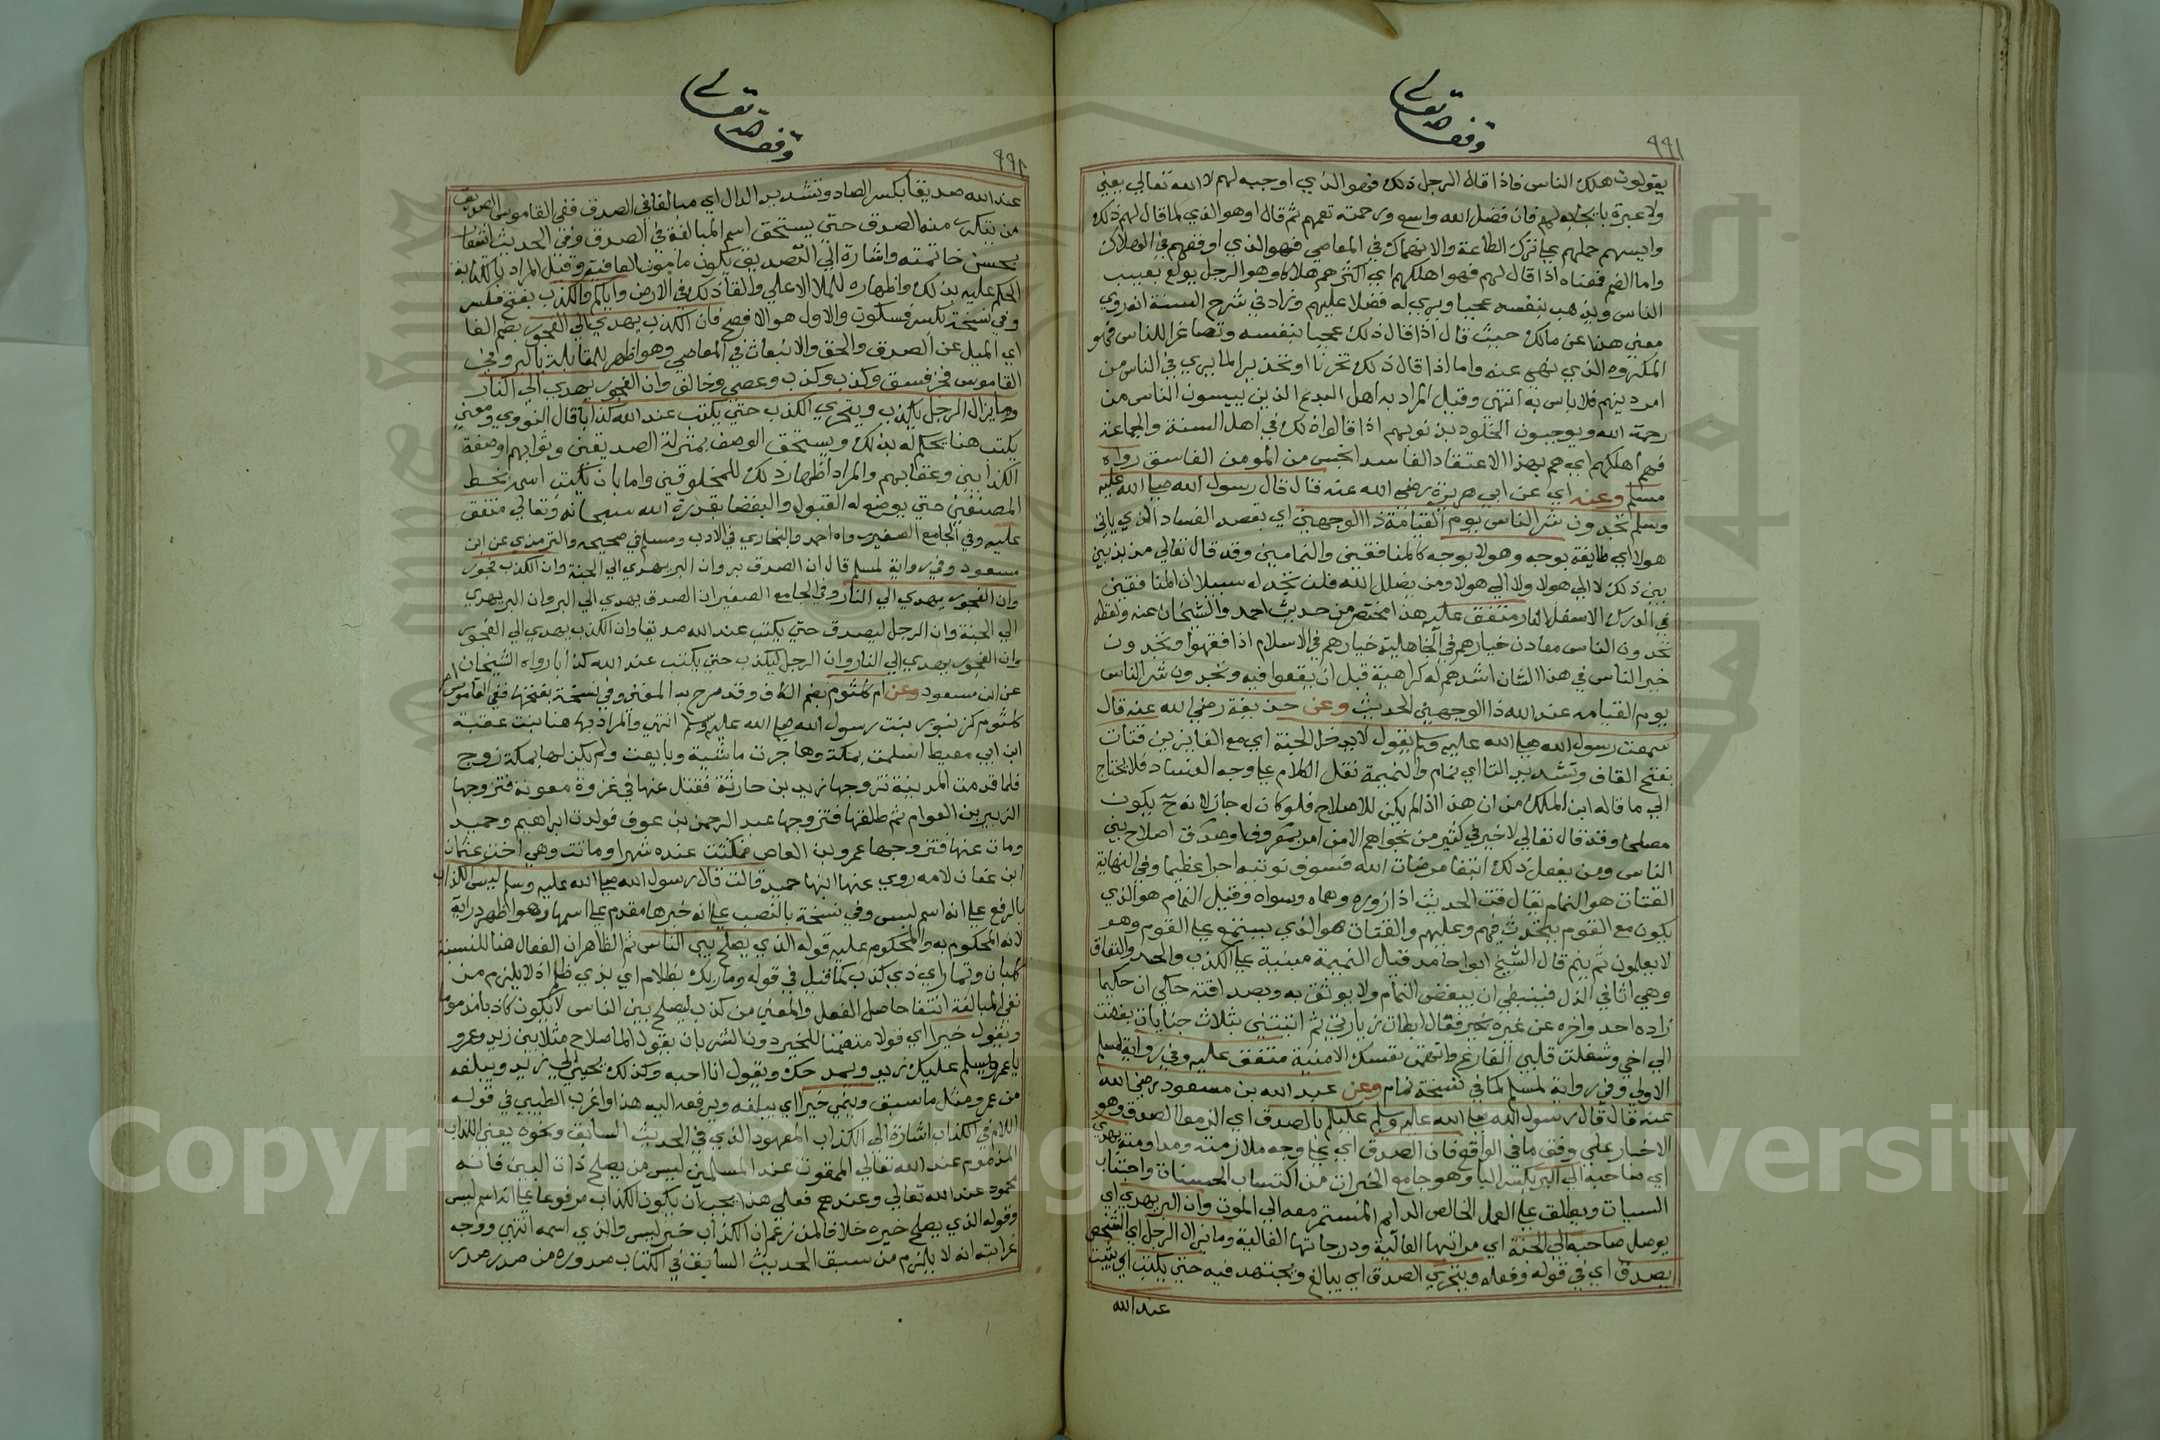 وقف لله تعالى
يقولون هلك الناس فاذا قال الرجل ذلك فهو الذي اوجبه لهم لا الله تعالي يعني
ولا عبرة بايجابه لهم فان فضل الله واسع ورحمته تعمهم ثم قال او هو الذي لما قال لهم ذلك
وايسهم حملهم علي ترك الطاعة والانهماك في المعاصي فهو الذي اوقعهم في الهلاك
واما الضم فمعناه اذا قال لهم فهو اهلكهم اي اكثرهم هلاكا وهو الرجل يولع بعيب
الناس ويذهب بنفسه عجبا ويري له فضلا عليهم وزاد في شرح السنة انه روي
معني هذا عن مالك حيث قال اذا قال ذلك عجبا بنفسه وتصاغرا للناس فهو
المكروه الذي نهي عنه واما اذا قال ذلك تحزنا او تحذيرا لما يري في الناس من
امر دينهم فلا باس به انتهي وقيل المراد به اهل البدع الذين ييسون الناس من
رحمة الله ويوجبون الخلود بذنوبهم اذا قالوا ذلك في اهل السنة والجماعة
فهم اهلكهم اي هم بهذا الاعتقاد الفاسد انجس من المومن الفاسق رواه
مسلم وعنه اي عن ابي هريرة رضي الله عنه قال قال رسول الله صلي الله عليه
وسلم تجدون شر الناس يوم القيامة ذا الوجهين اي بقصد الفساد الذي ياتي
هولا اي طايفة بوجه وهولا بوجه كالمنافقين والنمامين وقد قال تعالي مذبذبين
بين ذلك لا الي هولا ولا الي هولا ومن يضلل الله فلن تجد له سبيلا ان المنافقين
في الدرك الاسفل النار متفق عليه هذا مختصر من حديث احمد والشيخان عنه ولفظه
تجدون الناس معادن خيارهم في الجاهلية خيارهم في الاسلام اذا فقهوا وتجدون
خير الناس في هذا الشان اشدهم له كراهية قبل ان يقعوا فيه وتجدون شر الناس
يوم القيامه عند الله ذا الوجهين الحديث وعن حذيفة رضي الله عنه قال
سمعت رسول الله صلي الله عليه وسلم يقول لا يدخل الجنة اي مع الفايزين قتات
بفتح القاف وتشديد التا اي نمام والنميمة نقل الكلام علي وجه الفساد فلا يحتاج
الي ما قاله ابن الملك من ان هذا اذا لم يكن للاصلاح فلو كان له جاز لانه ح يكون
مصلحا وقد قال تعالي لا خير في كثير من نجواهم الا من امر بمعروف او صدق اصلاح بين
الناس ومن يفعل ذلك ابتغا مرضات الله فسوف نوتيه اجرا عظيما وفي النهاية
القتات هو النمام يقال قت الحديث اذا زوره وهياه وسواه وقيل النمام هو الذي
يكون مع القوم يتحدث فيهم وعليهم والقتات هو الذي يستمع علي القوم وهو
لا يعلمون ثم ينم قال الشيخ ابو حامد قيل النميمة مبنية علي الكذب والحسد والنفاق
وهي اثافي الذل فينبغي ان يبغض النمام ولا يوثق به وبصداقته حكي ان حكيما
زاده احد واخره عن غيره بخبر فقال ابطات زيارتي ثم اتيتني بثلاث جنايات بغضت
الي اخي وشغلت قلبي الفارغ واتهمت نفسك الامينة متفق عليه وفي رواية لمسلم
الاولي وفي رواية لمسلم كما في نسخة نمام وعن عبد الله بن مسعود رضي الله
عنه قال قال رسول الله صلي الله عليه وسلم عليكم بالصدق اي الزموا الصدق وهو
الاخبار علي وفق ما في الواقع فان الصدق اي علي وجه ملازمته ومداومته يهدي
اي صاحبه الي البر بكسر البا وهو جامع الخيرات من اكتساب الحسنات واجتناب
السيات ويطلق علي العمل الخالص الدايم المستمر معه الي الموت وان البر يهدي اي
يوصل صاحبه الي الجنة اي مراتبها العالية ودرجاتها الغالية وما يزال الرجل اي الشخص
يصدق اي في قوله وفعله ويتحري الصدق اي يبالغ ويجتهد فيه حتي يكتب اي يثبت
عند الله
وقف لله تعالى
عند الله صديقا بكسر الصاد وتشديد الدال اي مبالغا في الصدق ففي القاموس الصديق
من يتكرر منه الصدق حتي يستحق اسم المبالغة في الصدق وفي الحديث اشعار
بحسن خاتمته واشارة الي ان الصديق يكون مامون العاقبة وقيل المراد بالكتابة
الحكم عليه بذلك واظهاره للملا الاعلي والقا ذلك في الارض واياكم والكذب بفتح فكسر
وفي نسخة بكسر فسكون والاول هو الافصح فان الكذب يهدي الي الفجور بضم الفا
اي الميل عن الصدق والحق والانبعاث في المعاصي وهو اظهر للمقابلة بالبر وفي
القاموس فجر فسق وكذب وكذب وعصي وخالف وان الفجور يهدي الي النار
وما يزال الرجل يكذب ويتحري الكذب حتي يكتب عند الله كذابا قال النووي ومعني
يكتب هنا يحكم له بذلك ويستحق الوصف بمنزلة الصديقين وثوابهم او صفة
الكذابين وعقابهم والمراد اظهار ذلك للمخلوقين واما بان يكتب اسمه بخط
المصنفين حتي يوضع له القبول والبغضا بقدرة الله سبحانه وتعالي متفق
عليه وفي الجامع الصغير رواه احمد والبخاري في الادب ومسلم في صحيحه والترمذي عن ابن
مسعود وفي رواية لمسلم قال ان الصدق بر وان البر يهدي الي الجنة وان الكذب فجور
وان الفجور يهدي الي النار وفي الجامع الصغير ان الصدق يهدي الي البر وان البر يهدي
الي الجنة وان الرجل ليصدق حتي يكتب عند الله صديقا وان الكذب يهدي الي الفجور
وان الفجور يهدي الي النار وان الرجل ليكذب حتي يكتب عند الله كذابا رواه الشيخان
عن ابن مسعود وعن ام كلثوم بضم الكاف وقد صرح به المغني وفي نسخة بفتحها ففي القاموس
كلثوم كزنبور بنت رسول الله صلي الله عليه وسلم انتهي والمراد بها هنا بنت عقبة
ابن ابي معيط اسلمت بمكة وهاجرت ماشية وبايعت ولم يكن لها بمكة زوج
فلما قدمت المدينة تزوجها زيد بن حارثة فقتل عنها في غزوة موتة فتزوجها
الزبير بن العوام ثم طلقها فتزوجها عبد الرحمن بن عوف فولدت ابراهيم وحميد
ومات عنها فتزوجها عمرو بن العاص فمكثت عنده شهرا وماتت وهي اخت عثمان
ابن عفان لامه روي عنها ابنها حميد قالت قال رسول الله صلي الله عليه وسلم ليس الكذاب
بالرفع علي انه اسم ليس وفي نسخة بالنصب علي انه خبرها مقدم علي اسمها وهو اظهر دراية
لانه المحكوم به والمحكوم عليه قوله الذي يصلح بين الناس ثم الظاهر ان الفعال هنا للنسبة
كلبان وتمار اي ذي كذب كما قيل في قوله وما ربك بظلام اي بذي ظلم اذ لا يلزم من
نفي المبالغة انتفا حاصل الفعل والمعني من كذب ليصلح بين الناس لا يكون كاذبا مذموما
ويقول خيرا اي قولا متضمنا للخير دون الشر بان يقول للاصلاح مثلا بين زيد وعمرو
يا عمرو يسلم عليك زيد ويمدحك ويقول انا احبه وكذلك يجي الي زيد ويبلغه
من عمرو مثل ما سبق وينمي خيرا اي يبلغه ويرفعه اليه هذا واغرب الطيبي في قوله
اللام في الكذاب اشارة الي الكذاب المعهود الذي في الحديث السابق ونحوه يعني الكذاب
المذموم عند الله تعالي الممقوت عند المسلمين ليس من يصلح ذات البين فانه
محمود عند الله تعالي وعندهم فعلي هذا يجب ان يكون الكذاب مرفوعا علي انه اسم ليس
وقوله الذي يصلح خبره خلافا لمن زعم ان الكذاب خبر ليس والذي اسمه انتهي ووجه
غرابته انه لا يلزم من سبق الحديث السابق في الكتاب صدوره من صدر صدر
Copyright © King Saud University